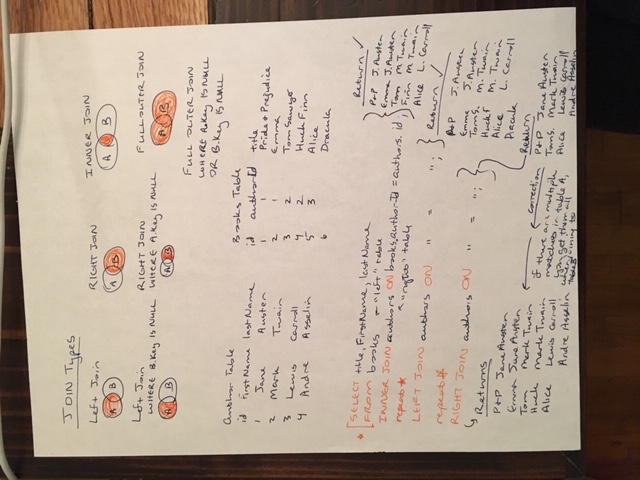 JOIN Types
Left Join
RIGHT JOIN
INNER JOIN
A B
A B
A B
Left Join
WHERE B.Key IS NULL
RIGHT JOIN
WHERE A.Key IS NULL
FULL OUTER JOIN
A B
A B
A B
FULL OUTER JOIN
WHERE A.Key IS NULL
OR B.Key IS NULL
Author Table
id FirstName lastName
1 Jane Austen
2 Mark Twain
3 Lewis Carroll
4 Andre Asselin
Books Table
id authorId title
1 1 Pride + Prejudice
2 1 Emma
3 2 Tom Sawyer
4 2 Huck Finn
5 3 Alice
6 Dracula
* [SELECT title, FirstName, lastName
FROM books ← "left" table
INNER JOIN authors ON books.authorId = authors.id;
repeat * ↖ "right" table
LEFT JOIN authors ON " = ";
repeat *
RIGHT JOIN authors ON " = ";
Return ✓
P+P J. Austen
Emma J. Austen
Tom M. Twain
Finn M. Twain
Alice L. Carroll
Return ✓
P+P J. Austen
Emma J. Austen
TomS. M. Twain
Huck F M. Twain
Alice L. Carroll
Dracula
Returns
P+P Jane Austen
Emma Jane Austen
Tom Mark Twain
Huck Mark Twain
Alice Lewis Carroll
Andre Asselin
← correction
if there are multiple
matches in table A,
you get them all
when joining to
Return
P+P Jane Austen
TomS. Mark Twain
Alice Lewis Carroll
Andre Asselin